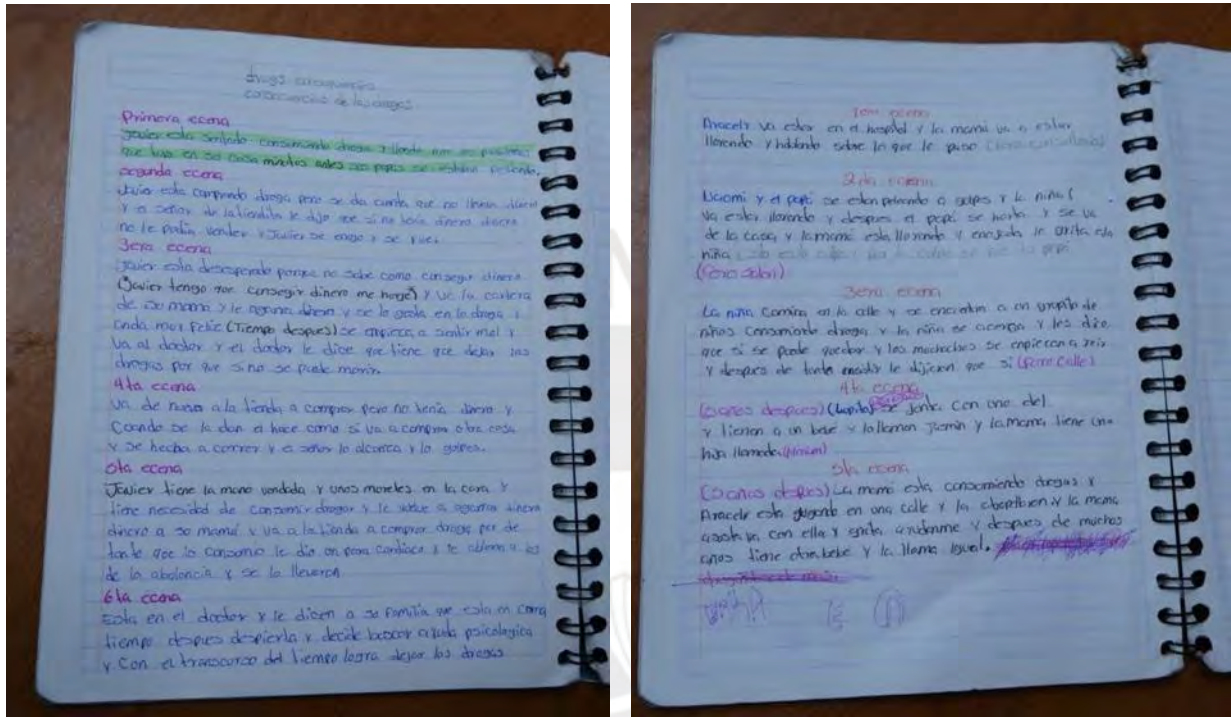 drugs
consecuencias de las drogas
Primera ecena
Javier esta sentado consumiendo droga y llorando por los
que tuvo en su casa minutos antes sus papis se estaban peleando.
segunda ecena
Javier esta comprando droga pero se da cuenta que no lleva dinero
Y el señor de la tiendita le dijo que si no tenia dinero
no le podia vender y Javier se enojo y se fue.
3era ecena
Javier esta desesperado porque no sabe como consegir dinero
(Javier tengo que consegir dinero me urge) y ve la cartera
de su mama y le agarra dinero y se lo gasta en la droga y
anda muy feliz (Tiempo despues) se empieza a sentir mal y
va al doctor y el doctor le dice que tiene que dejar las
drogas por que sino se puede morir.
4ta ecena
va de nuevo a la tienda a comprar pero no tenia dinero y
cuando se la dan el hace como si va a comprar otra cosa
y se hecha a correr y el señor lo alcanza y lo golpea.
5ta ecena
Javier tiene la mano vendada y unos moretes en la cara y
tiene necesidad de consumir drogas y le vuelve a agarrar dinero
dinero a su mamá y va a la tienda a comprar droga por de
tanto que lo consumio le dio un paro cardiaco y le a los
de la abulancia y se lo llevaron
6ta ecena
Esta en el doctor y le dicen a su familia que esta en coma
tiempo despues despierta y decide buscar ayuda psicologica
y con el transcurso del tiempo logra dejar las drogas
1era ecena
Aracely va estar en el hospital y la mami va a estar
llorando y hablando sobre lo que le paso
2da ecena
y el papá se estan peleando a golpes y la niña
va estar llorando y despues el papá se harta y se va
de la casa y la mama esta llorando y enojada le grita a la
niña
3era ecena
La niña camina en la calle y se encuentra a un grupito de
niños consumiendo droga y la niña se acerca y les dice
que si se puede quedar y los muchachos se empiezan a reir
y despues de tanto le dijieron que si
4ta ecena
(años despues) (Lupita) se junta con uno del
y tienen a un bebé y la llaman y la mama tiene una
hija llamada
5ta ecena
(años despues) La mama esta consumiendo drogas y
Aracely esta jugando en una calle y la y la mama
va con ella y grita ayudenme y despues de muchos
años tiene otra bebé y la llama igual.